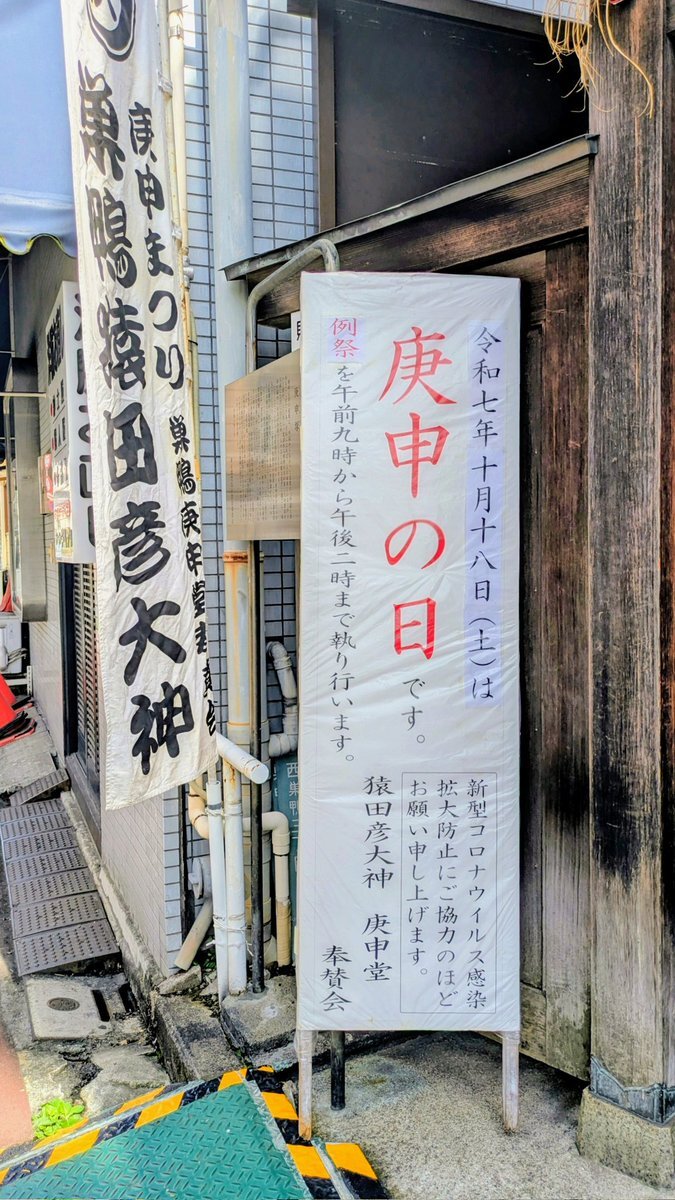 令和七年十月十八日（土）は
庚申の日です。
例祭を午前九時から午後二時まで執り行います。
新型コロナウイルス感染
拡大防止にご協力のほど
お願い申し上げます。
猿田彦大神 庚申堂
奉賛会
庚申まつり 巣鴨庚申堂奉賛会
巣鴨猿田彦大神
西巣鴨三